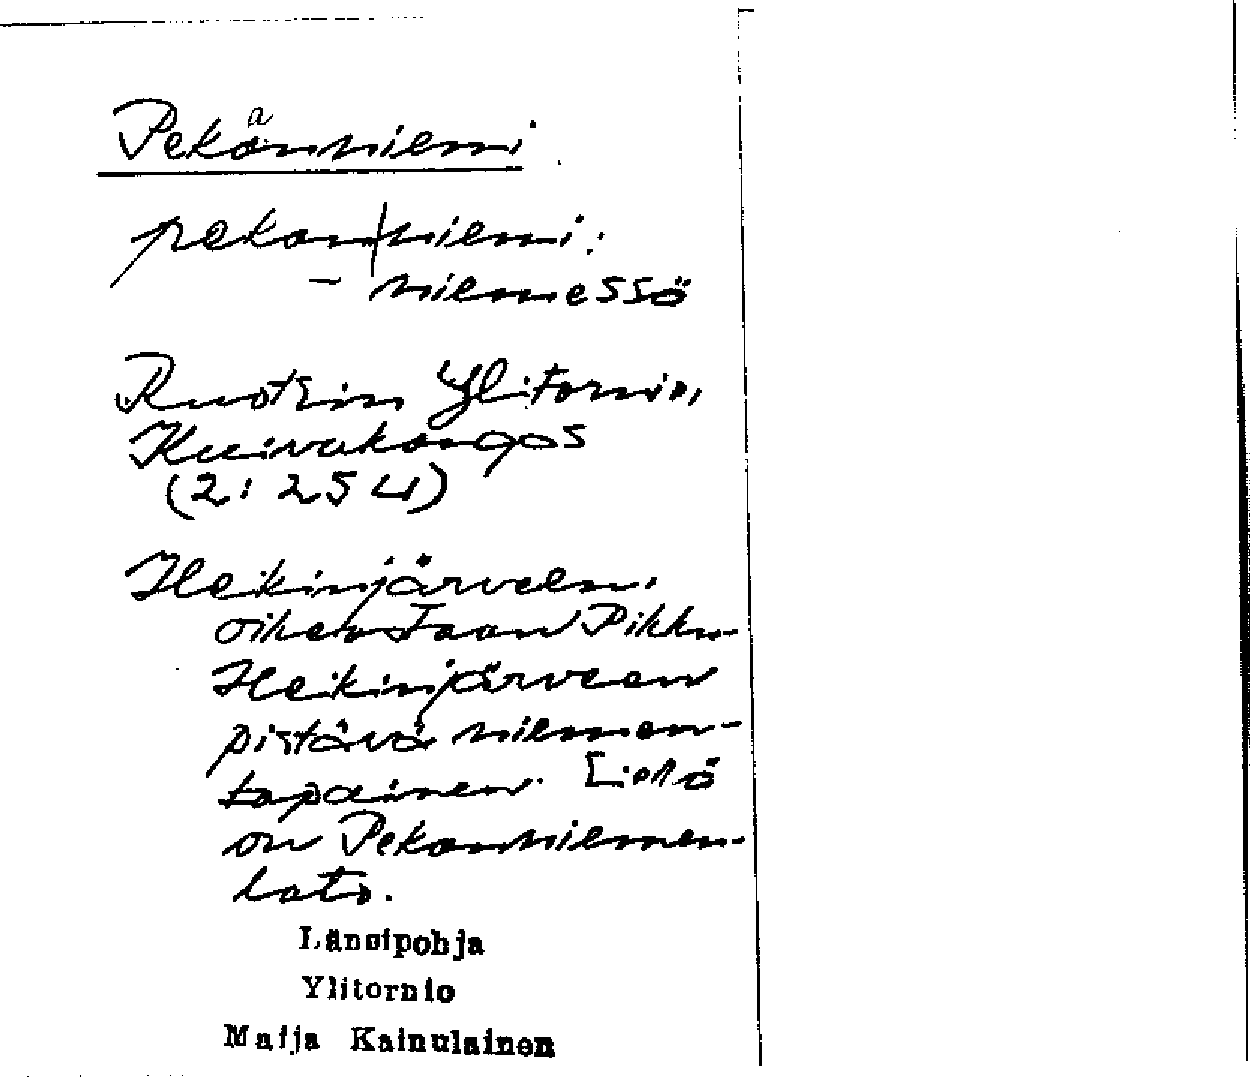 Pekanniemi
pekan|niemi:
– niemessä
Ruotsin Ylitornio,
Kuivakangas
(2: 254)
Heikinjärveen,
oikeastaan Pikku-
Heikinjärveen
pistävä niemen-
tapainen. Siinä
on Pekanniemen-
lato.
Länsipohja
Ylitornio
Maija Kainulainen